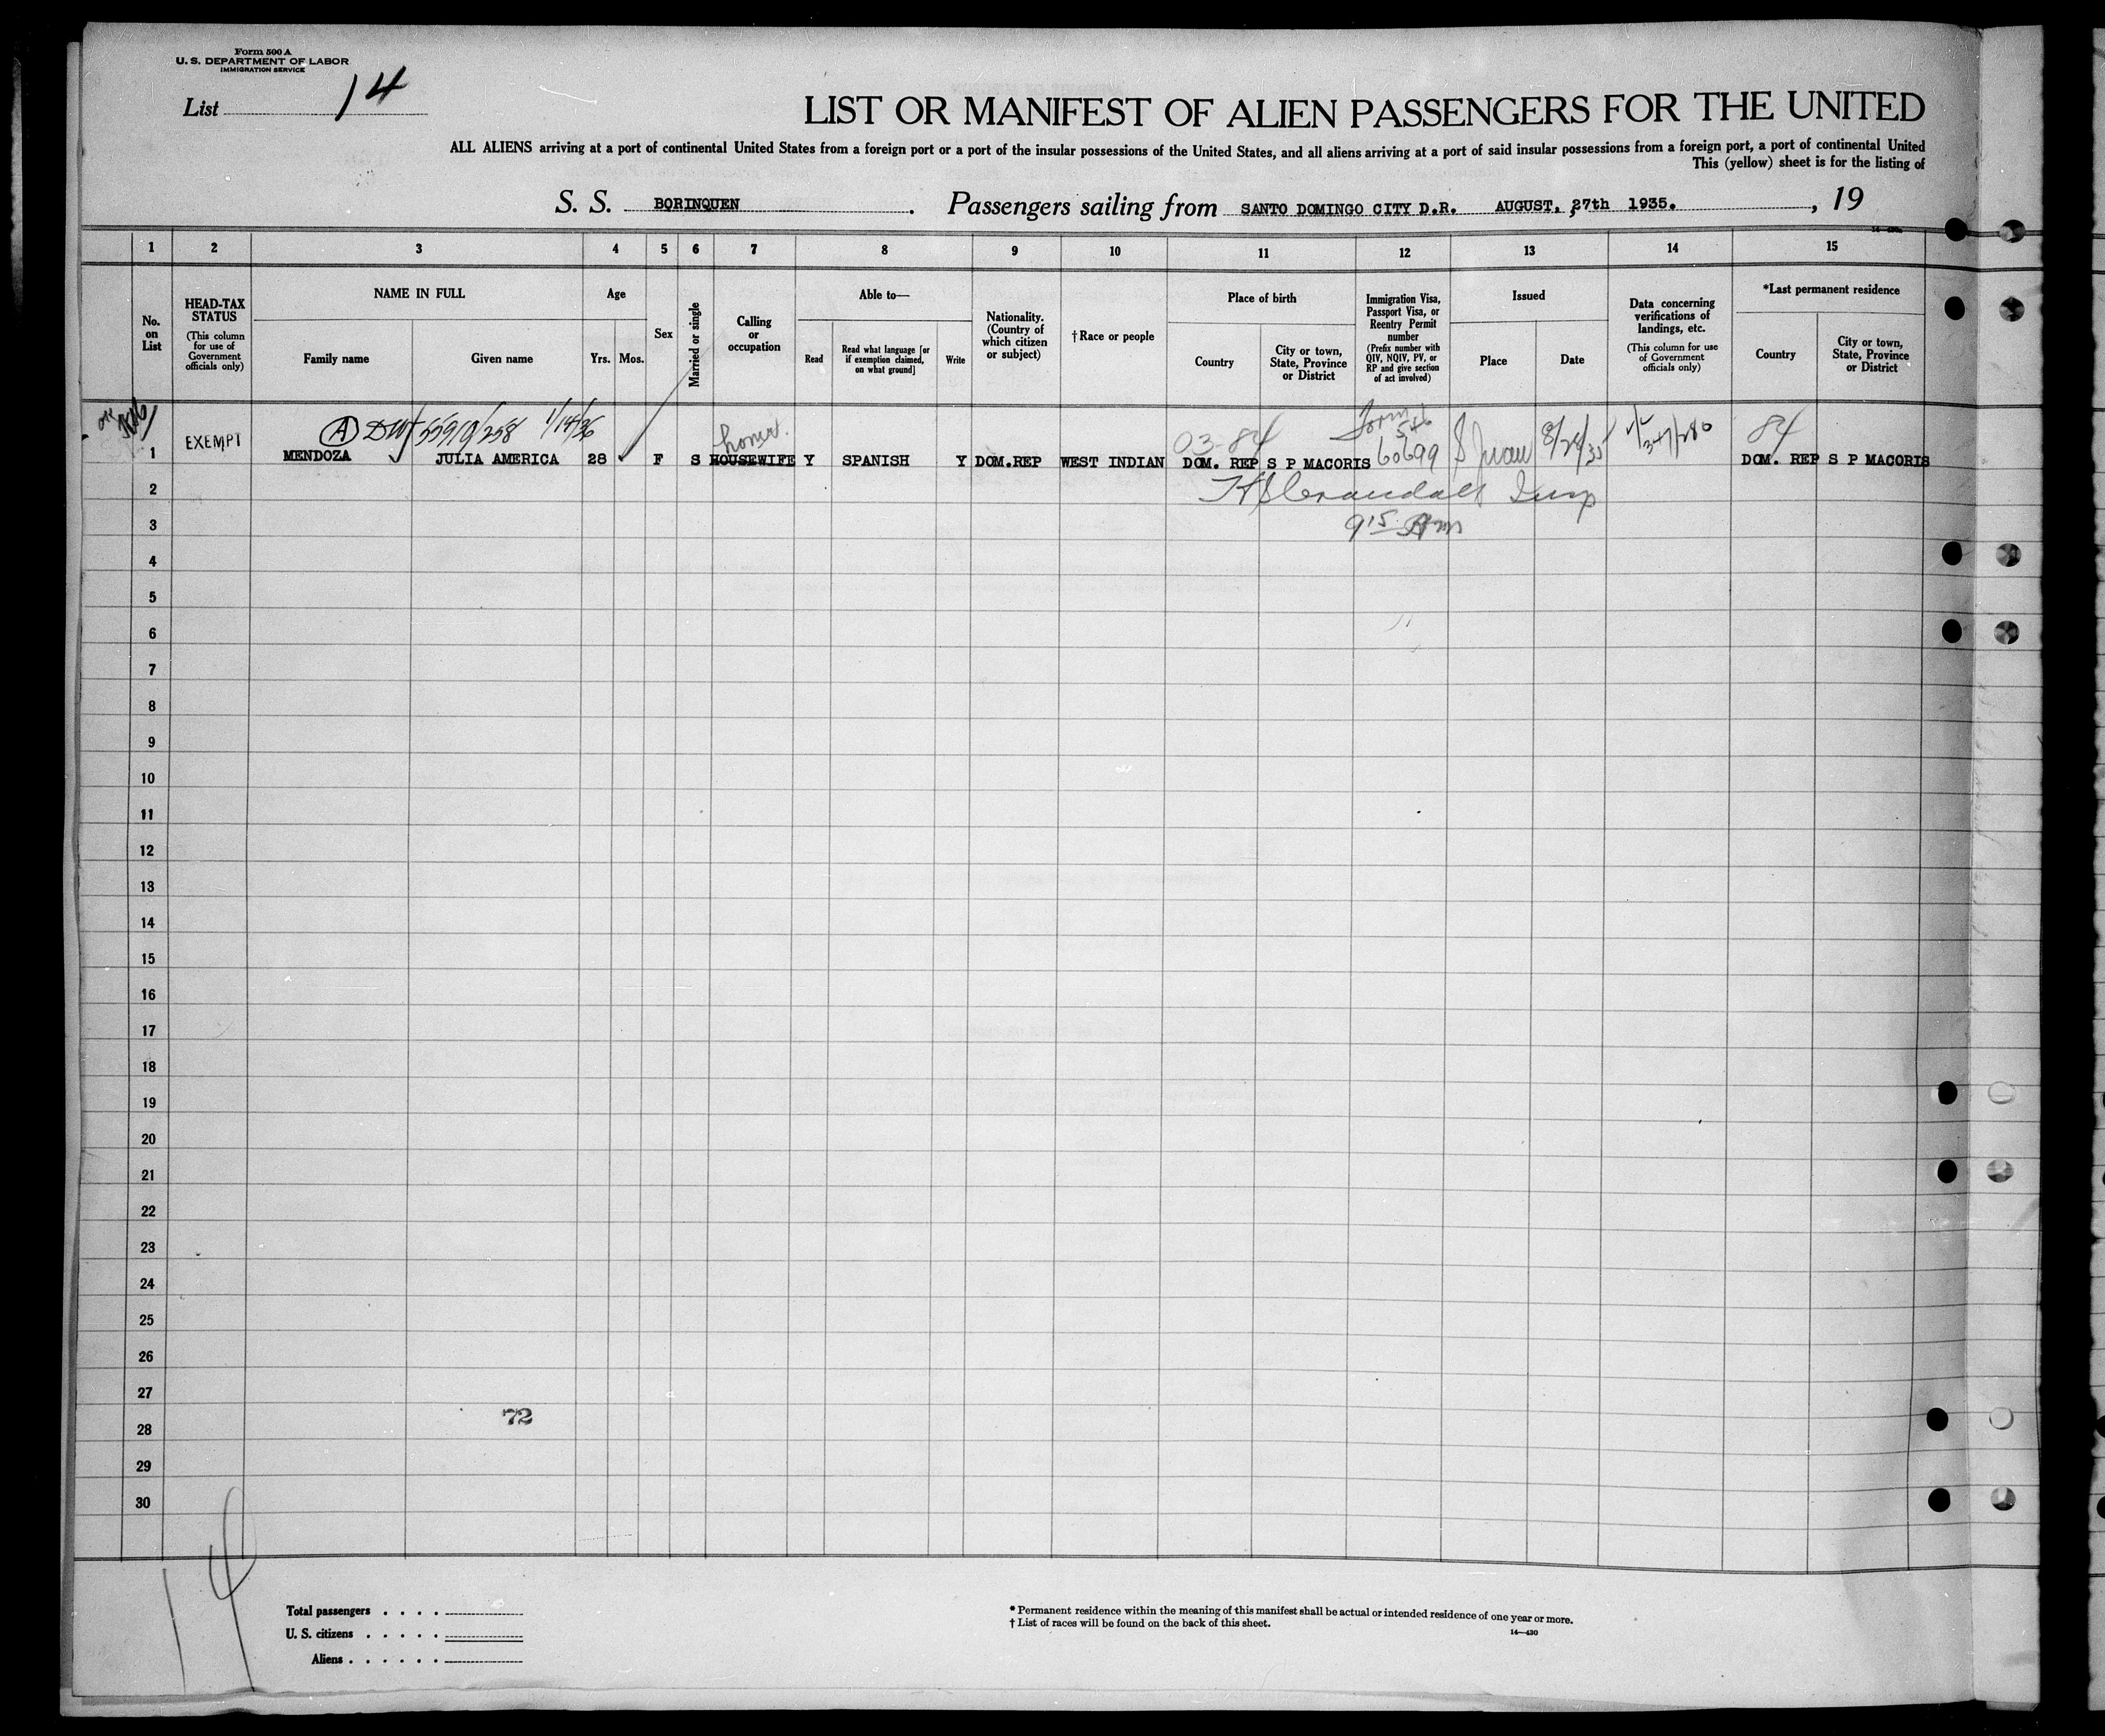 Form 500 A
U. S. DEPARTMENT OF LABOR
IMMIGRATION SERVICE
List 14
LIST OR MANIFEST OF ALIEN PASSENGERS FOR THE UNITED
ALL ALIENS arriving at a port of continental United States from a foreign port or a port of the insular possessions of the United States, and all aliens arriving at a port of said insular possessions from a foreign port, a port of continental United
This (yellow) sheet is for the listing of
S. S. BORINQUEN. Passengers sailing from SANTO DOMINGO CITY D.R. AUGUST, 27th 1935. , 19
1 2 3 4 5 6 7 8 9 10 11 12 13 14 15
No. on List
HEAD-TAX STATUS
(This column for use of Government officials only)
NAME IN FULL
Family name
Given name
Age
Yrs.
Mos.
Sex
Married or single
Calling or occupation
Able to—
Read
Read what language [or if exemption claimed, on what ground]
Write
Nationality. (Country of which citizen or subject)
† Race or people
Place of birth
Country
City or town, State, Province or District
Immigration Visa, Passport Visa, or Reentry Permit number
(Prefix number with QIV, NQIV, PV, or RP and give section of act involved)
Issued
Place
Date
Data concerning verifications of landings, etc.
(This column for use of Government officials only)
*Last permanent residence
Country
City or town, State, Province or District
A 559/0/258 1/14/36 03-84 Form 546 84
1 EXEMPT MENDOZA JULIA AMERICA 28 F S HOUSEWIFE Y SPANISH Y DOM.REP WEST INDIAN DOM. REP S P MACORIS 60699 S Juan 8/28/35 DOM. REP S P MACORIS
2 Crandall Insp
3 9 15 Am
4
5
6
7
8
9
10
11
12
13
14
15
16
17
18
19
20
21
22
23
24
25
26
27
72
28
29
30
14
Total passengers . . . .
U. S. citizens . . . . .
Aliens . . . . . .
* Permanent residence within the meaning of this manifest shall be actual or intended residence of one year or more.
† List of races will be found on the back of this sheet.
14—430